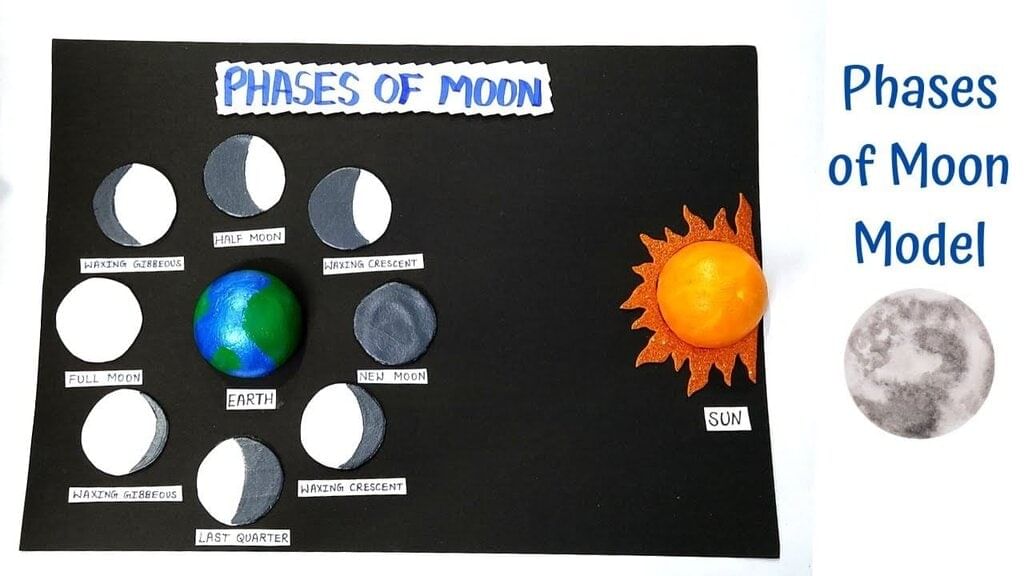 PHASES OF MOON
HALF MOON
WAXING GIBBEOUS
WAXING CRESCENT
FULL MOON
EARTH
NEW MOON
SUN
WAXING GIBBEOUS
WAXING CRESCENT
LAST QUARTER
Phases
of Moon
Model